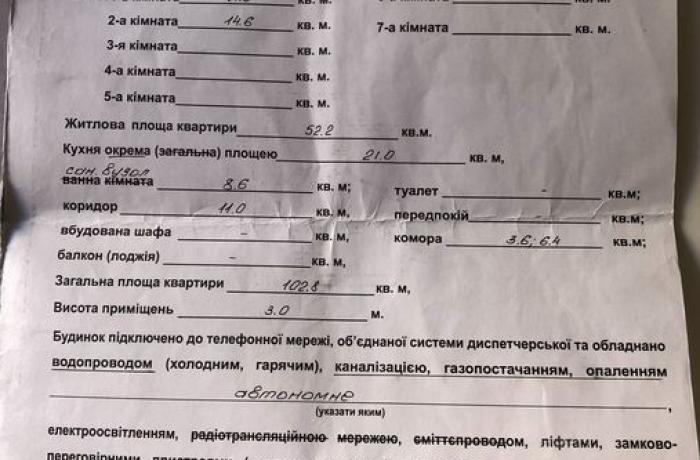 кв. м.
2-а кімната 14.6 кв. м. 7-а кімната кв. м.
3-я кімната кв. м.
4-а кімната кв. м.
5-а кімната кв. м.
Житлова площа квартири 52.2 кв.м.
Кухня окрема (загальна) площею 21.0 кв. м,
сан. вузол
ванна кімната 8.6 кв. м; туалет - кв.м;
коридор 11.0 кв. м, передпокій - кв.м;
вбудована шафа - кв. м, комора 3.6; 6.4 кв.м;
балкон (лоджія) - кв. м,
Загальна площа квартири 102.8 кв. м,
Висота приміщень 3.0 м.
Будинок підключено до телефонної мережі, об'єднаної системи диспетчерської та обладнано
водопроводом (холодним, гарячим), каналізацією, газопостачанням, опаленням
автономне ,
(указати яким)
електроосвітленням, радіотрансляційною мережею, сміттєпроводом, ліфтами, замково-
переговорними